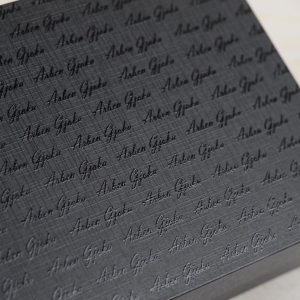 Arben Gjoka Arben Gjoka
Arben Gjoka Arben Gjoka Arben Gjoka
Arben Gjoka Arben Gjoka Arben Gjoka
Arben Gjoka Arben Gjoka Arben Gjoka
Arben Gjoka Arben Gjoka Arben Gjoka Arben Gjoka
Arben Gjoka Arben Gjoka Arben Gjoka Arben Gjoka
Arben Gjoka Arben Gjoka Arben Gjoka Arben Gjoka
Arben Gjoka Arben Gjoka Arben Gjoka Arben Gjoka
Arben Gjoka Arben Gjoka Arben Gjoka
Arben Gjoka Arben Gjoka Arben Gjoka
Arben Gjoka Arben Gjoka
Arben Gjoka